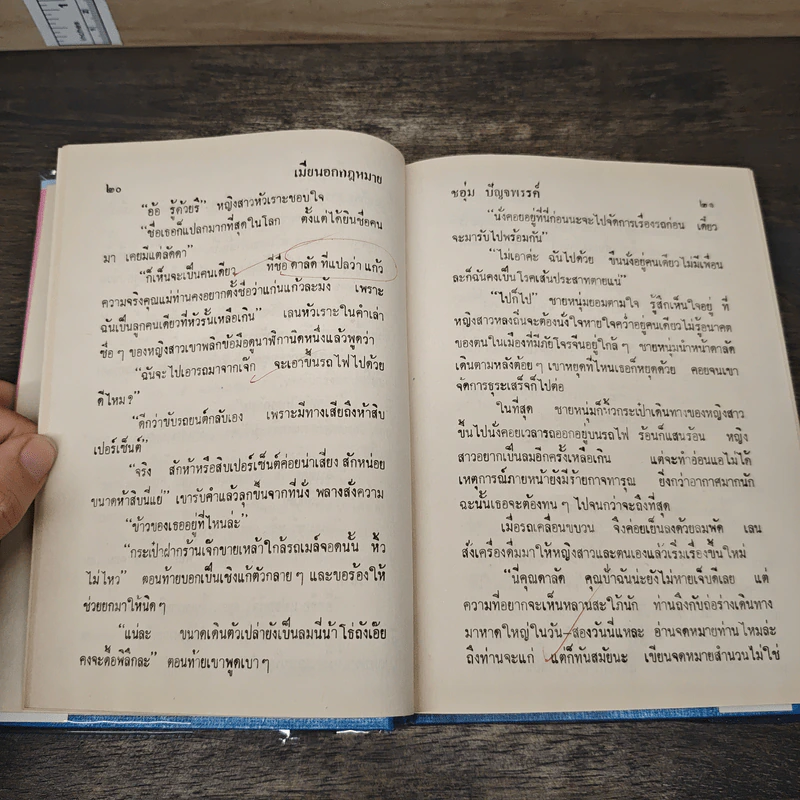 ๒๐
เมียนอกกฎหมาย
“อ้อ รู้ด้วยรึ” หญิงสาวหัวเราะชอบใจ
“ชื่อเธอก็แปลกมากที่สุดในโลก ตั้งแต่ได้ยินชื่อคน
มา เคยมีแต่ลัดดา”
“ก็เห็นจะเป็นคนเดียว ที่ชื่อ ดาลัด ที่แปลว่า แก้ว
ความจริงคุณแม่ท่านคงอยากตั้งชื่อว่าแก่นแก้วละมัง เพราะ
ฉันเป็นลูกคนเดียวที่หัวรั้นเหลือเกิน” เลนหัวเราะในคำเล่า
ชื่อๆ ของหญิงสาวเขาพลิกข้อมือดูนาฬิกานิดหนึ่งแล้วพูดว่า
“ฉันจะไปเอารถมาจากเจ๊ก จะเอาขึ้นรถไฟไปด้วย
ดีไหม?
“ดีกว่าขับรถยนต์กลับเอง เพราะมีทางเสียถึงห้าสิบ
เปอร์เซ็นต์”
“จริง สักห้าหรือสิบเปอร์เซ็นต์ค่อยน่าเสี่ยง สักหน่อย
ขนาดห้าสิบนี่แย่” เขารับคำแล้วลุกขึ้นจากที่นั่ง พลางสั่งความ
“ข้าวของเธออยู่ที่ไหนล่ะ”
“กระเป๋าฝากร้านเจ๊กขายเหล้าใกล้รถเมล์จอดนั้น หิ้ว
ไม่ไหว” ตอนท้ายบอกเป็นเชิงแก้ตัวกลายๆ และขอร้องให้
ช่วยยกมาให้นิดๆ
“แน่ละ ขนาดเดินตัวเปล่ายังเป็นลมนี่น้า โธ่ถังเอ๊ย
คงจะดื้อพิลึกละ” ตอนท้ายเขาพูดเบาๆ
ชอุ่ม ปัญจพรรค์
๒๑
“นั่งคอยอยู่ที่นี่ก่อนนะจะไปจัดการเรื่องรถก่อน เดี๋ยว
จะมารับไปพร้อมกัน”
“ไม่เอาค่ะ ฉันไปด้วย ขืนนั่งอยู่คนเดียวไม่มีเพื่อน
ละก็ฉันคงเป็นโรคเส้นประสาทตายแน่”
“ไปก็ไป” ชายหนุ่มยอมตามใจ รู้สึกเห็นใจอยู่ ที่
หญิงสาวหลงถิ่นจะต้องนั่งใจหายใจคว่ำอยู่คนเดียวไม่รู้อนาคต
ของตนในเมืองที่มีภัยโจรจีนอยู่ใกล้ๆ ชายหนุ่มนำหน้าดาลัด
เดินตามหลังต้อยๆ เขาหยุดที่ไหนเธอก็หยุดด้วย คอยจนเขา
จัดการธุระเสร็จก็ไปต่อ
ในที่สุด ชายหนุ่มก็หิ้วกระเป๋าเดินทางของหญิงสาว
ขึ้นไปนั่งคอยเวลารถออกอยู่บนรถไฟ ร้อนก็แสนร้อน หญิง
สาวอยากเป็นลมอีกครั้งเหลือเกิน แต่จะทำอ่อนแอไม่ได้
เหตุการณ์ภายหน้ายังมีร้ายกาจทารุณ ยิ่งกว่าอากาศมากนัก
ฉะนั้นเธอจะต้องทนๆ ไปจนกว่าจะถึงที่สุด
เมื่อรถเคลื่อนขบวน จึงค่อยเย็นลงด้วยลมพัด เลน
สั่งเครื่องดื่มมาให้หญิงสาวและตนเองแล้วเริ่มเรื่องขึ้นใหม่
“นี่คุณดาลัด คุณป้าฉันน่ะยังไม่หายเจ็บดีเลย แต่
ความที่อยากจะเห็นหลานสะใภ้นัก ท่านถึงกับถ่อร่างเดินทาง
มาหาดใหญ่ในวัน–สองวันนี่แหละ อ่านจดหมายท่านไหมล่ะ
ถึงท่านจะแก่ แต่ก็ทันสมัยนะ เขียนจดหมายสำนวนไม่ใช่